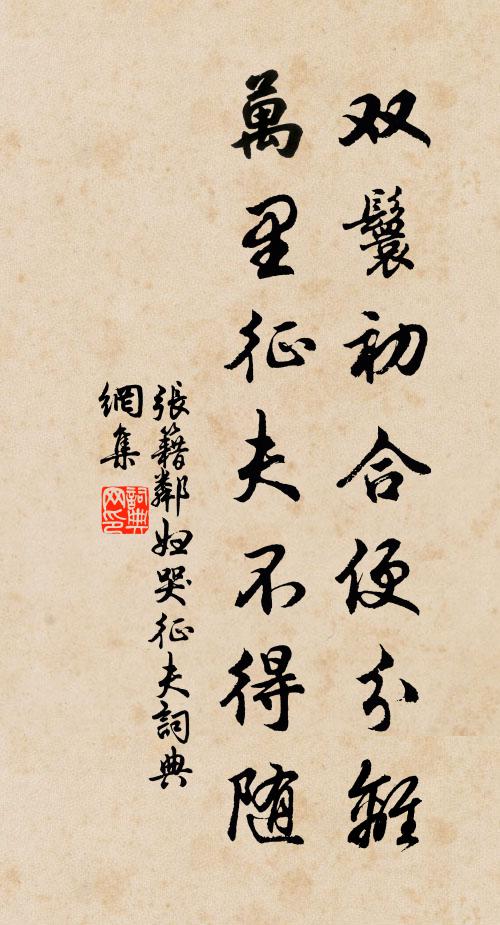 双鬟初合便分離
萬里征夫不得隨
張籍鄰婦哭征夫詞典
網集
詞典網印